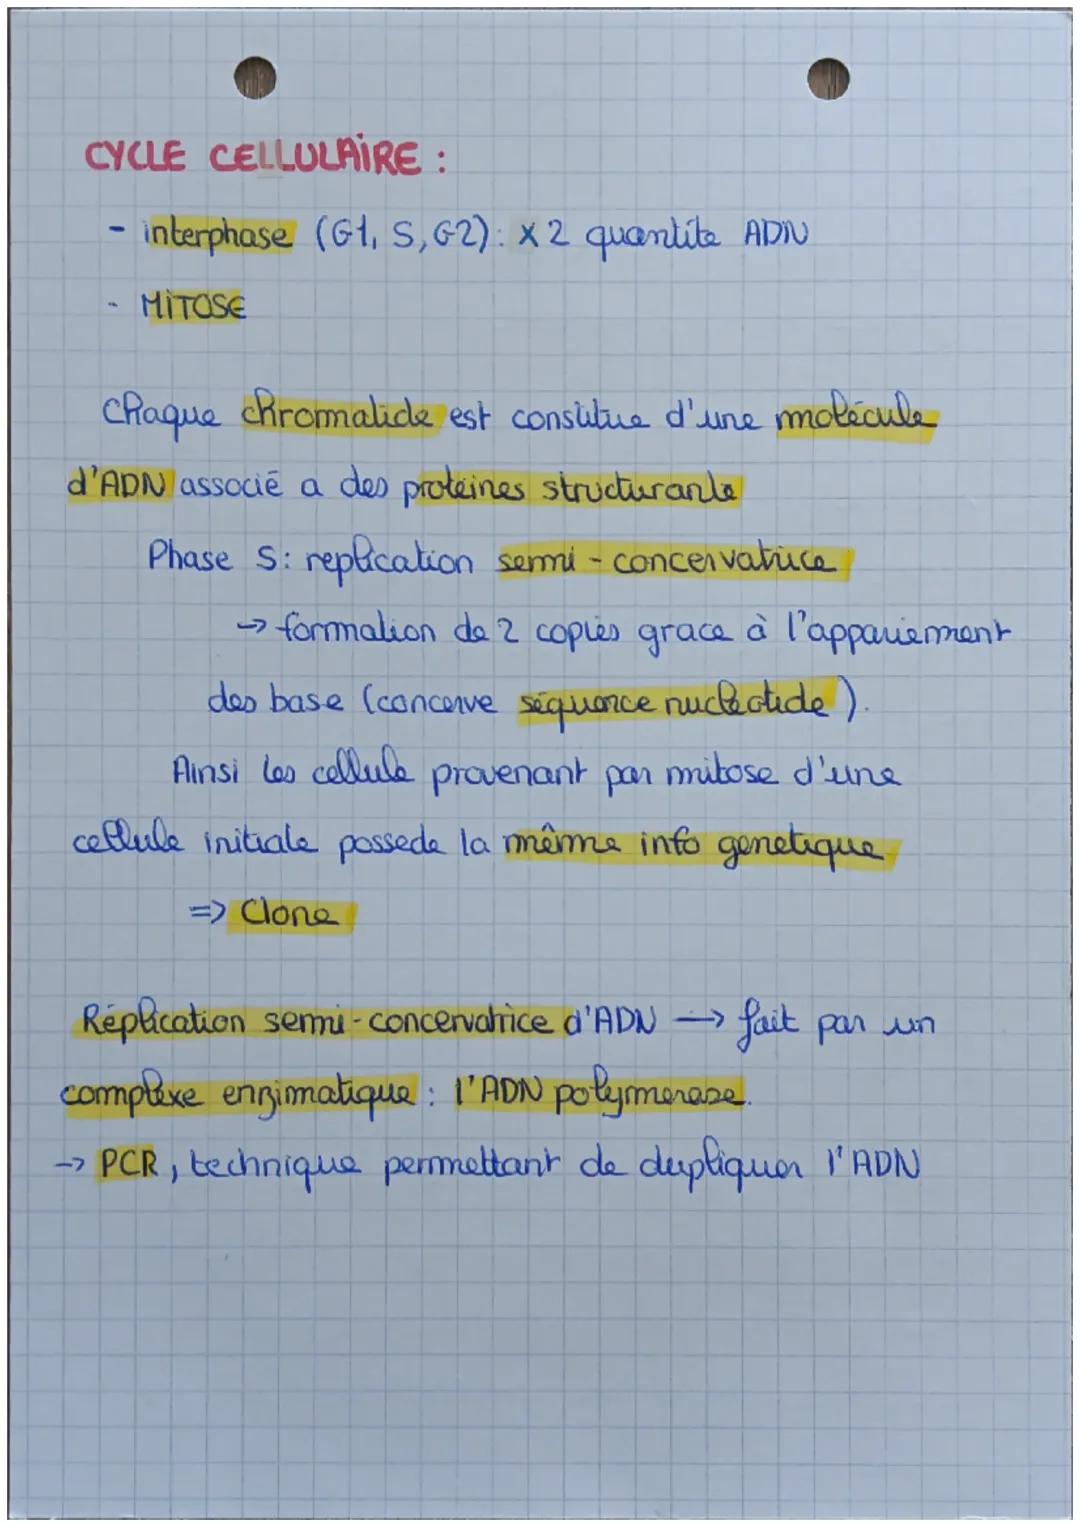 CYCLE CELLULAIRE :
- interphase (G1, S, G2): x 2 quantite ADN
- MITOSE
Chaque chromatide est constitue d'une molécule
d'ADN associé a des proteines structurante
Phase S: replication semi-concervatrice
→ formation de 2 copies grace à l'appariement
des base (concerve séquence nucleotide).
Ainsi les cellule provenant par mitose d'une
cellule initiale possede la même info genetique
=> Clone
Réplication semi-concervatrice d'ADN → fait par un
complexe enzimatique : l'ADN polymerase.
→ PCR, technique permettant de dupliquer l'ADN